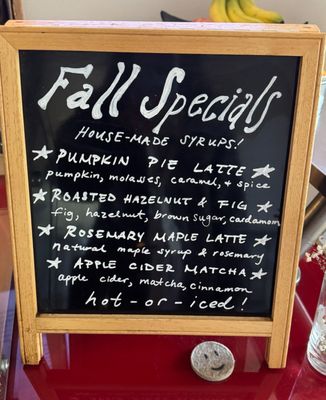 Fall Specials
HOUSE-MADE SYRUPS!
PUMPKIN PIE LATTE
pumpkin, molasses, caramel, & spice
ROASTED HAZELNUT & FIG
fig, hazelnut, brown sugar, cardamom
ROSEMARY MAPLE LATTE
natural maple syrup & rosemary
APPLE CIDER MATCHA
apple cider, matcha, cinnamon
hot-or-iced!